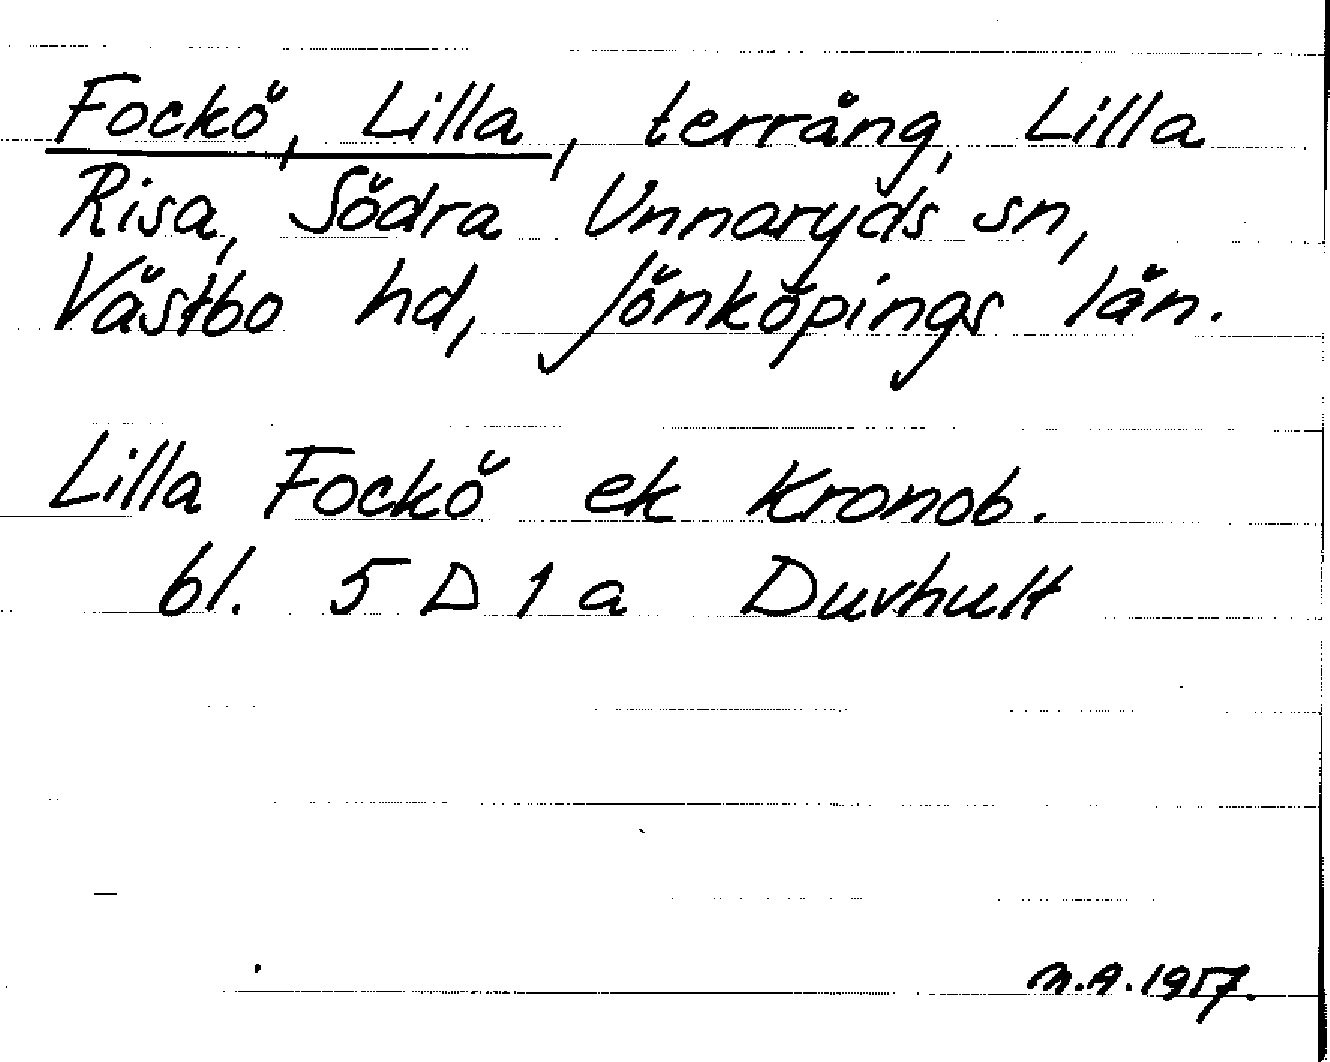 Fockö, Lilla, terräng, Lilla
Risa, Södra Unnaryds sn,
Västbo hd, Jönköpings län.
Lilla Fockö ek Kronob.
bl. 5 D 1 a Duvhult
M.A. 1957.